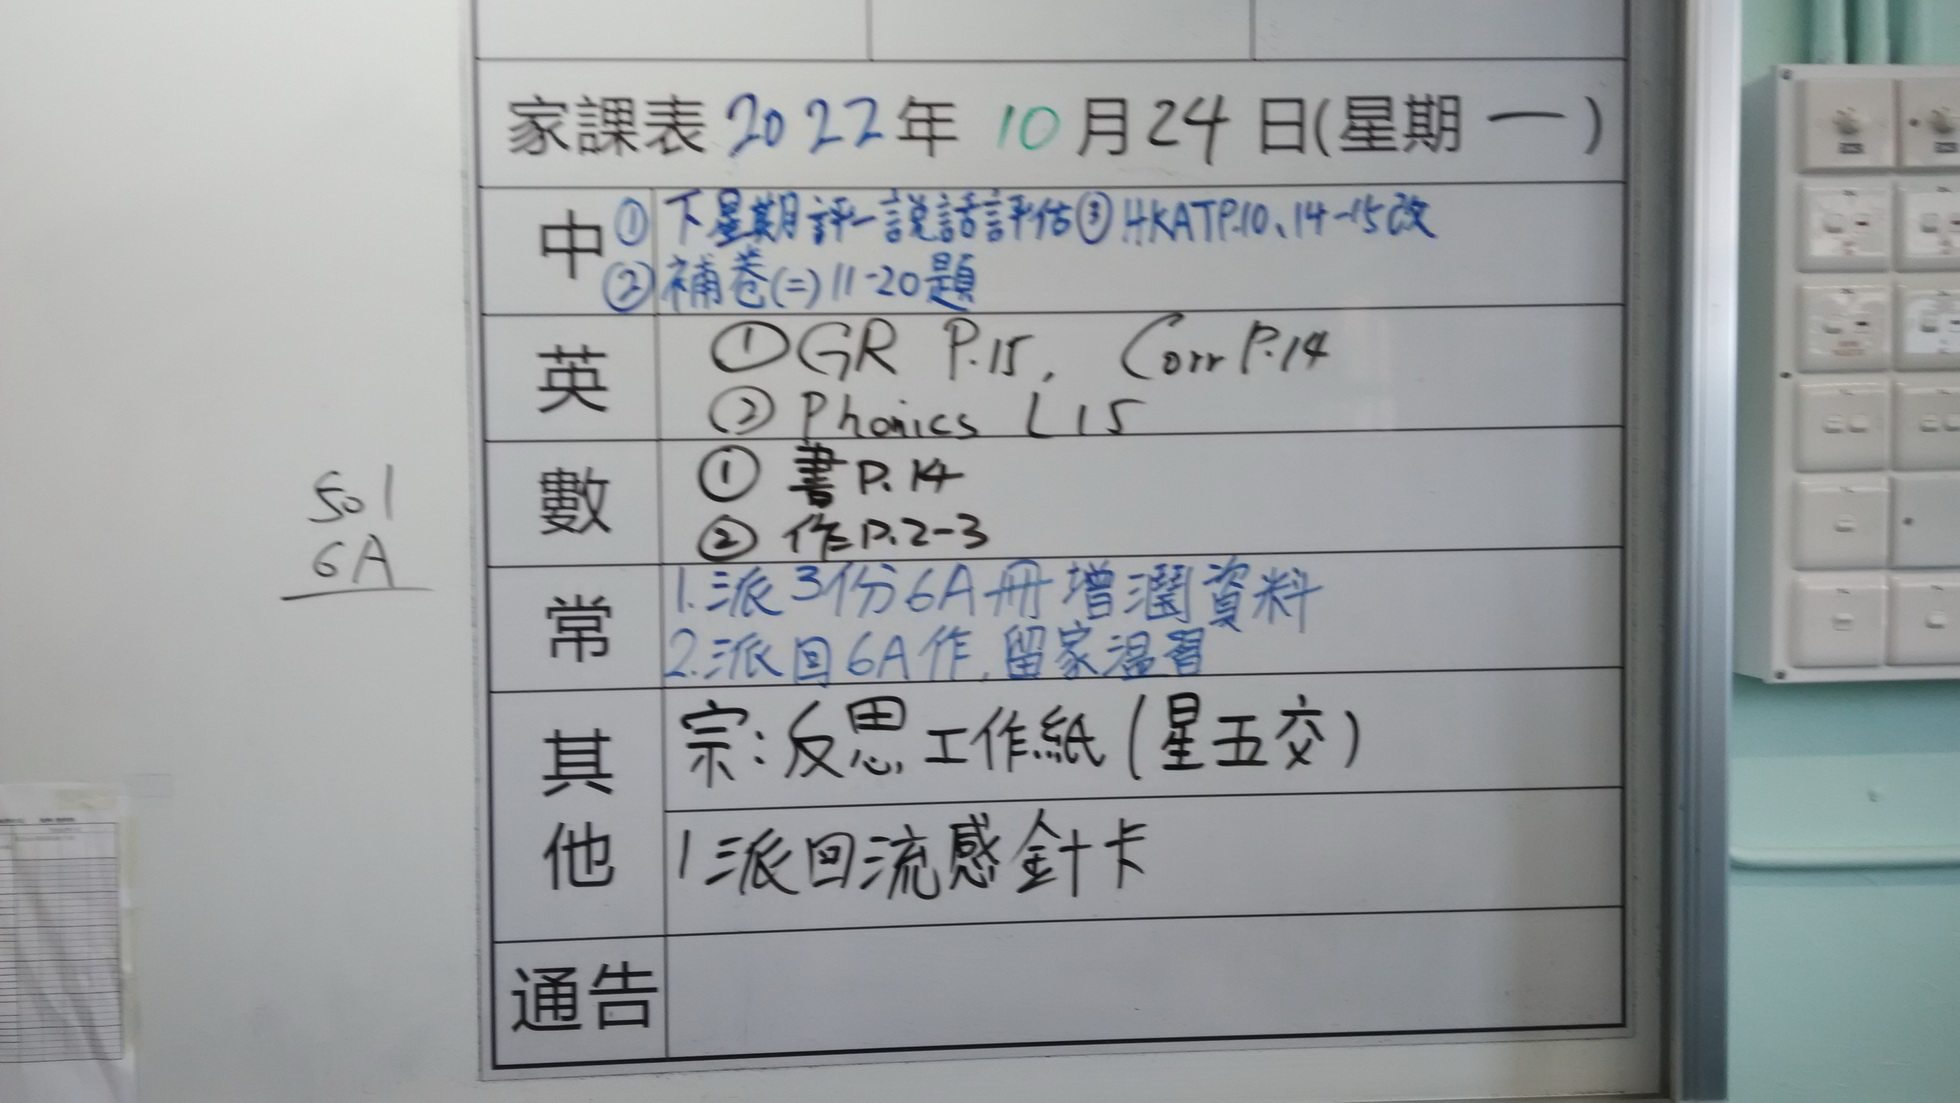 家課表 2022年 10月24日(星期一)
中 ① 下星期評一說話評估 ③ HKAT P.10、14-15改
② 補卷(二) 11-20題
英 ① GR P.15, Corr P.14
② Phonics L15
數 ① 書P.14
② 作P.2-3
常 1.派3份6A冊增潤資料
2.派回6A作,留家溫習
其他 宗:反思工作紙(星五交)
1派回流感針卡
通告
501
6A